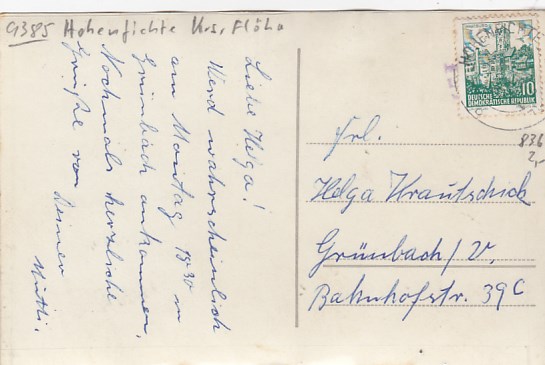 9385 Hohenfichte Krs. Flöha
Liebe Helga!
Werd wahrscheinlich
am Montag 18³⁰ in
Grünbach ankommen.
Nochmals herzliche
Grüße von Deiner
Mutti.
DEUTSCHE
DEMOKRATISCHE REPUBLIK
10
836
2,-
Frl.
Helga Krautschick
Grünbach/V.
Bahnhofstr. 39C